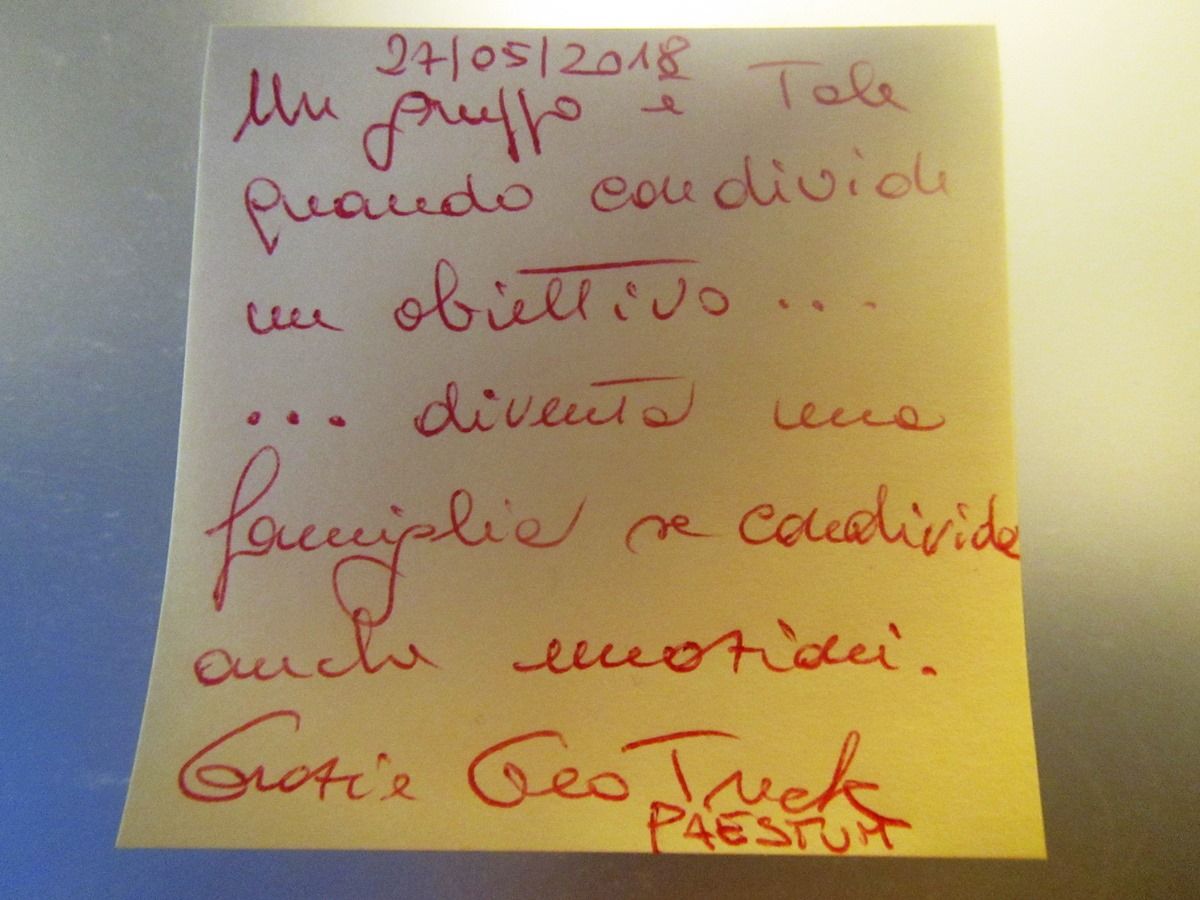 27/05/2018
Un gruppo è Tale
quando condivide
un obiettivo ...
... diventa una
famiglia se condivide
anche emozioni.
Grazie GeoTrek
PAESTUM